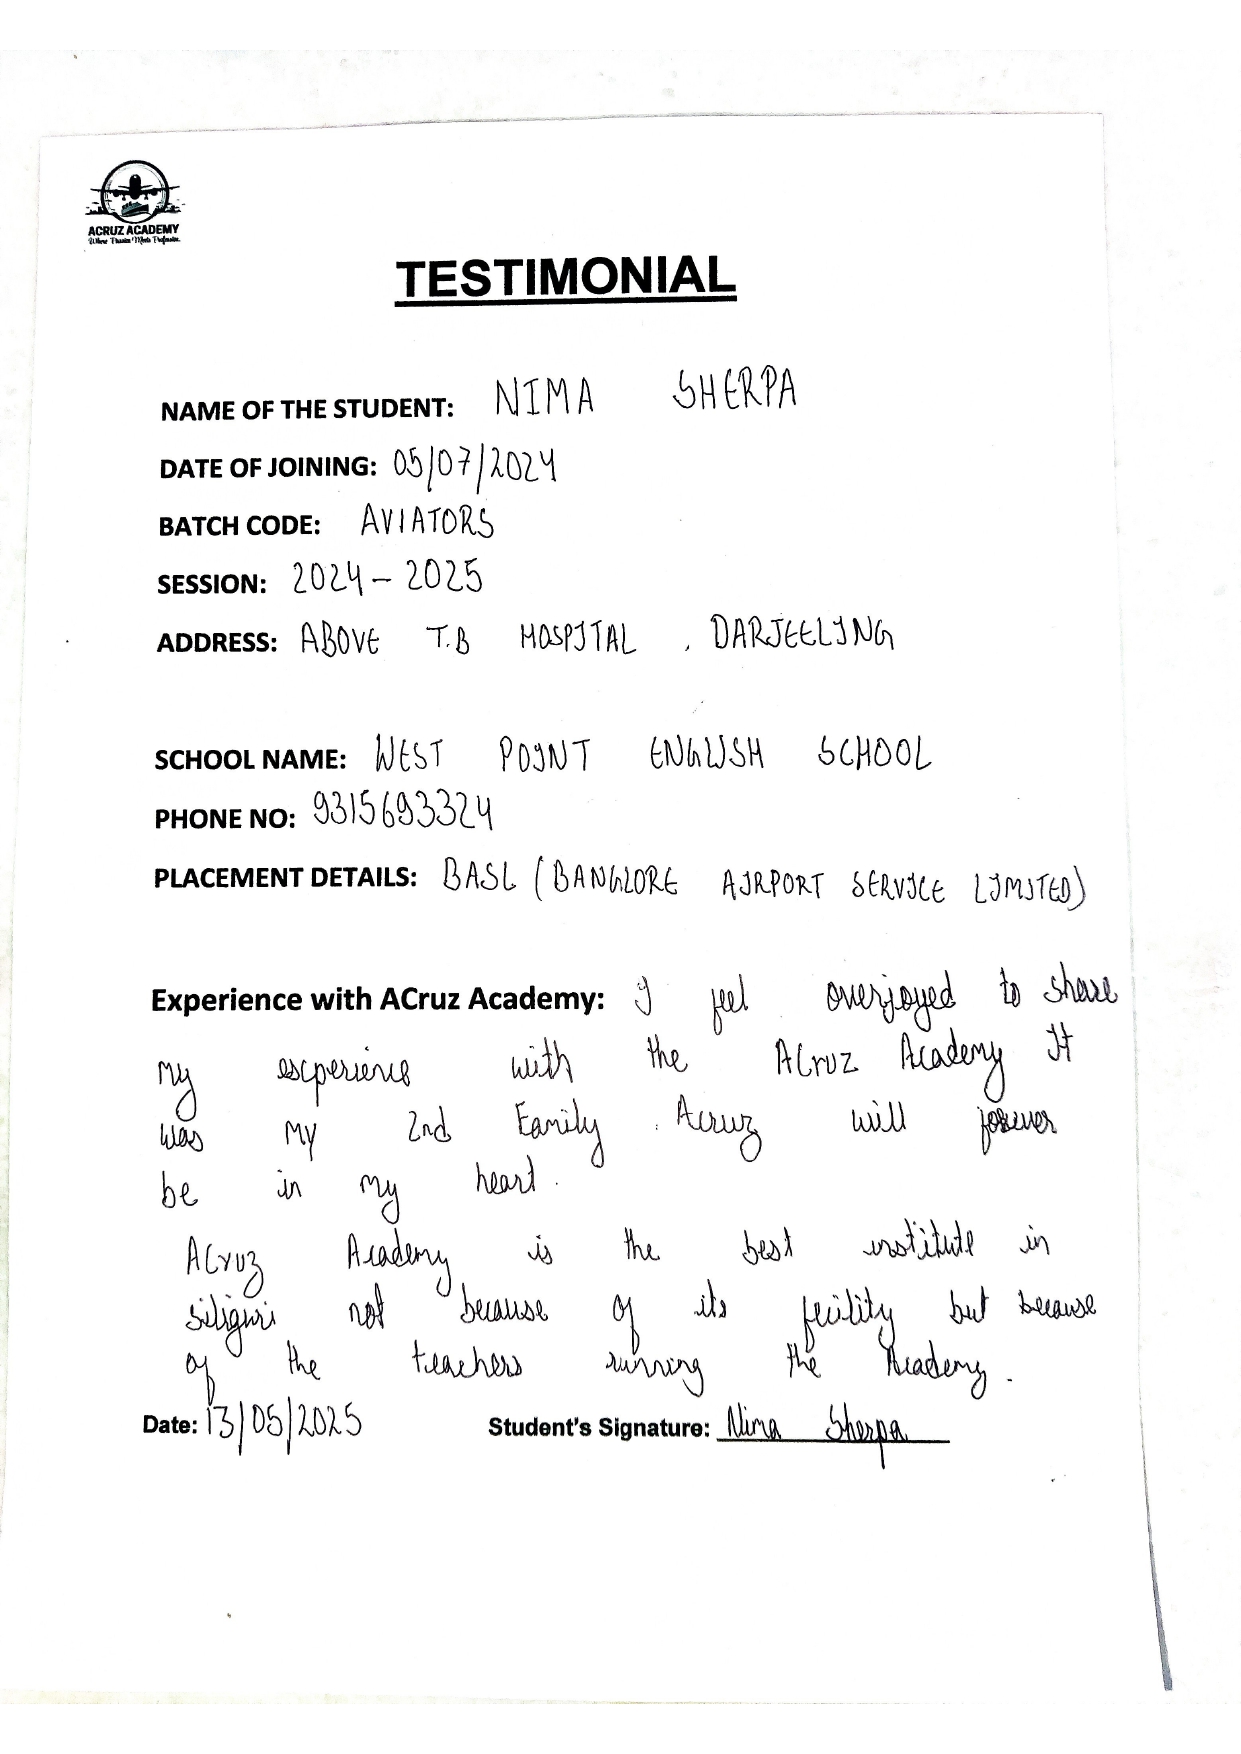 ACRUZ ACADEMY
Where Passion Meets Profession.
TESTIMONIAL
NAME OF THE STUDENT: NIMA SHERPA
DATE OF JOINING: 05/07/2024
BATCH CODE: AVIATORS
SESSION: 2024 – 2025
ADDRESS: ABOVE T.B HOSPITAL , DARJEELING
SCHOOL NAME: WEST POINT ENGLISH SCHOOL
PHONE NO: 9315693324
PLACEMENT DETAILS: BASL (BANGLORE AIRPORT SERVICE LIMITED)
Experience with ACruz Academy: I feel overjoyed to share
my experience with the ACruz Academy It
was my 2nd Family . Acruz will forever
be in my heart .
ACruz Academy is the best institute in
siliguri not because of its fecility but because
of the teachers running the Academy .
Date: 13/05/2025 Student's Signature: Nima Sherpa